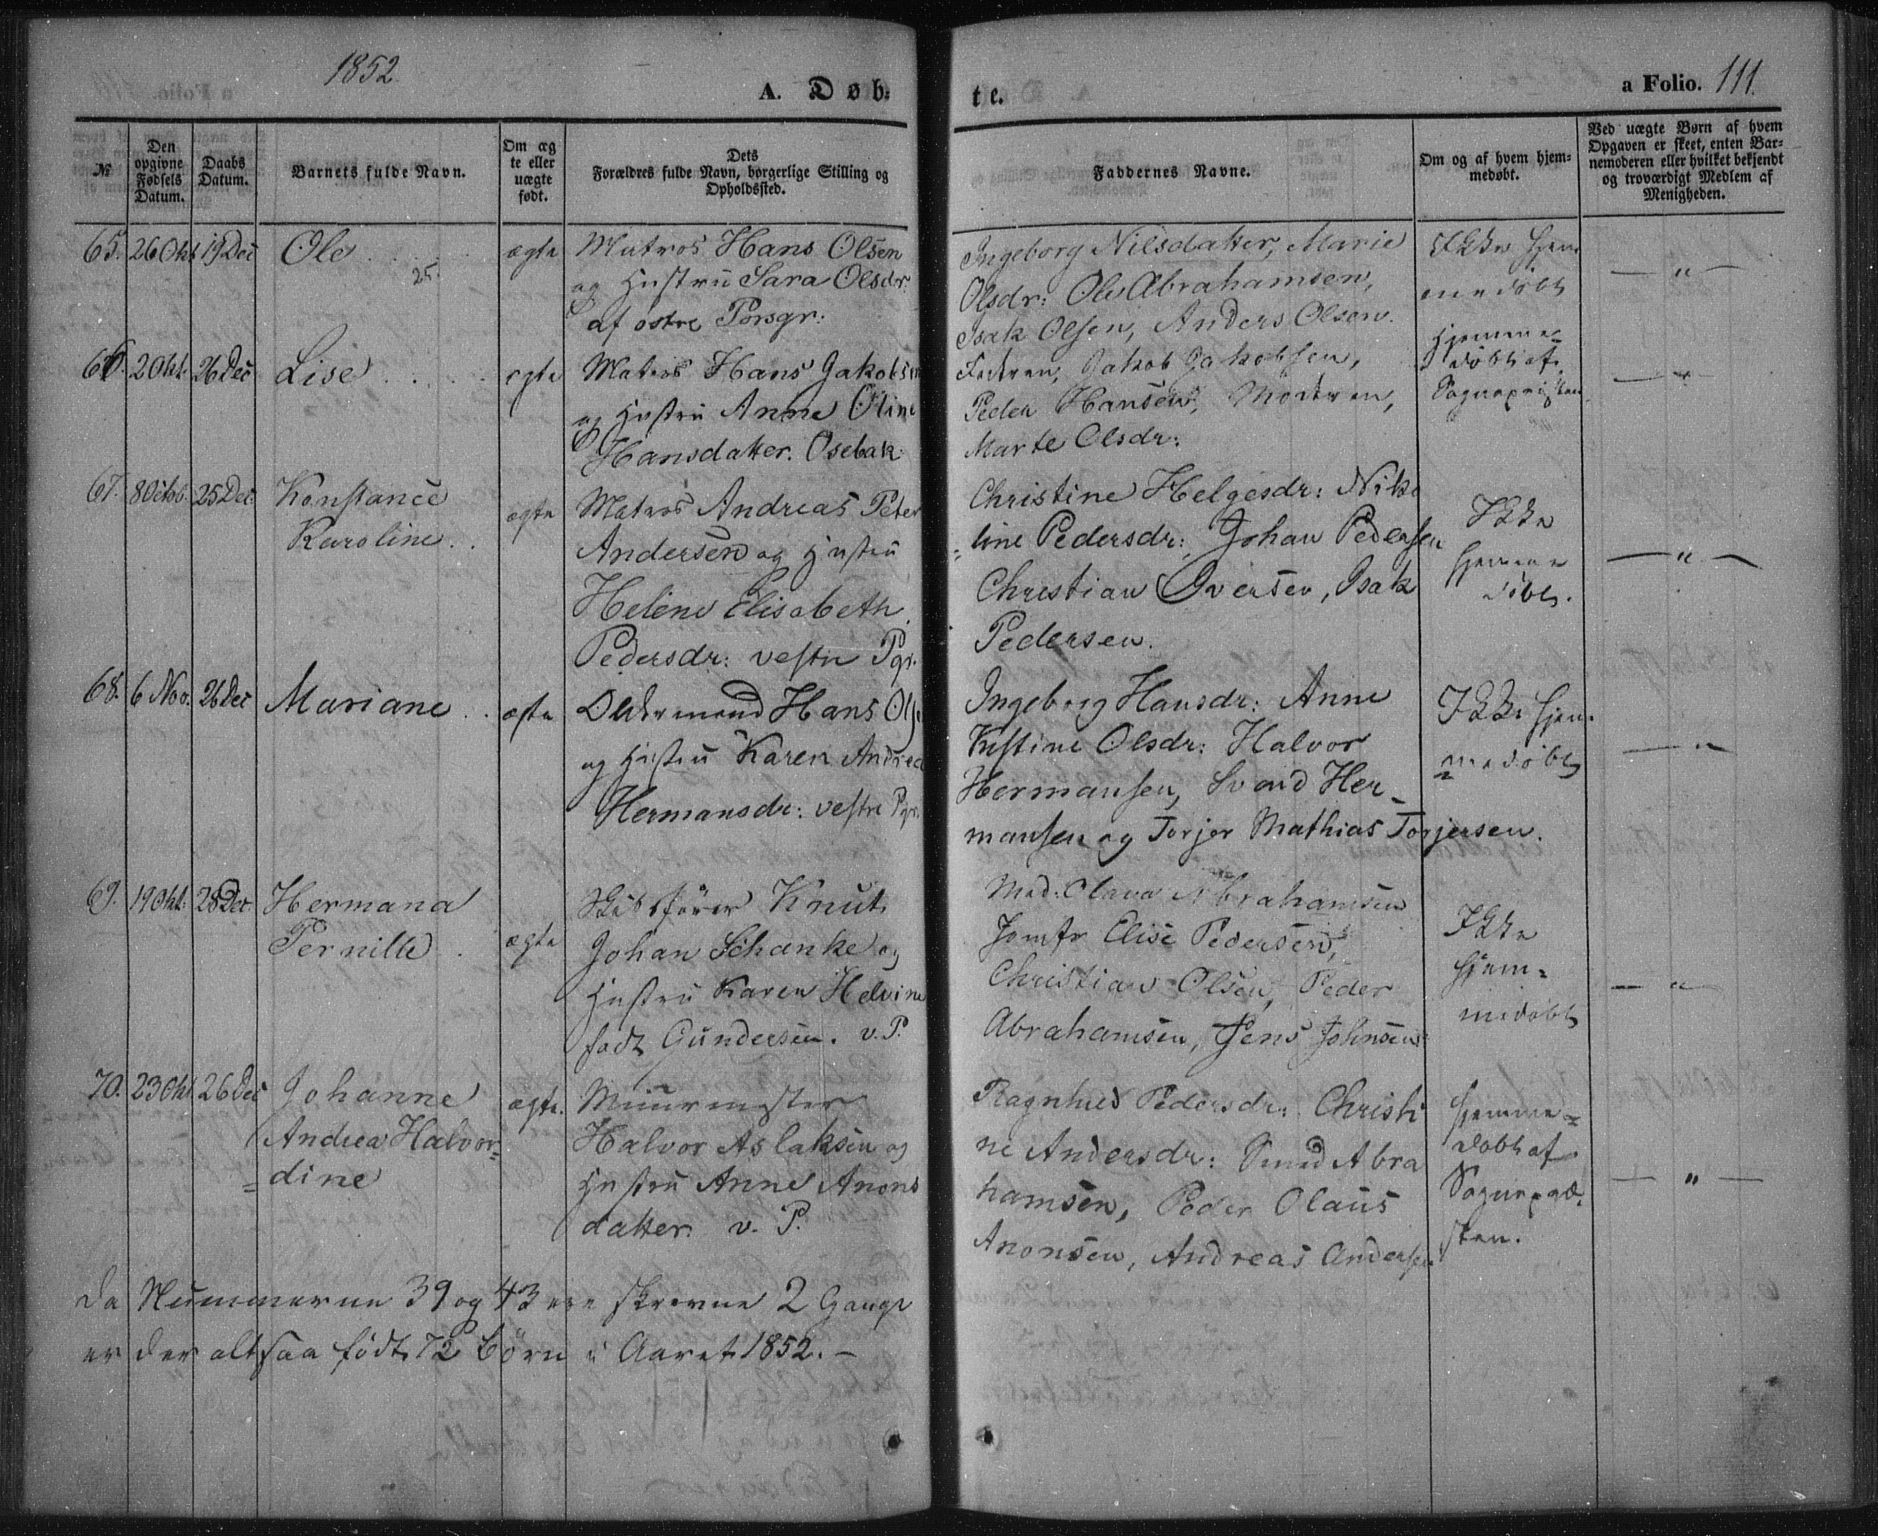 1852
A. Døb-
№
Den opgivne Fødsels Datum.
Daabs Datum.
Barnets fulde Navn.
Om ægte eller uægte født.
Dets Forældres fulde Navn, borgerlige Stilling og Opholdssted.
te.
a Folio. 111.
Faddernes Navne.
Om og af hvem hjemmedøbt.
Ved uægte Børn af hvem Opgaven er skeet, enten Barnemoderen eller hvilket bekjendt og troværdigt Medlem af Menigheden.
65. 26 Okt 19 Dec Ole 25. ægte Matros Hans Olsen
og Hustru Sara Olsdr:
af østre Porsgr:
Ingeborg Nilsdatter, Marie
Olsdr: Ole Abrahamsen,
Isak Olsen, Anders Olsen.
Ikke hjem
medøbt
— " —
66. 2 Okt. 26 Dec Lise ægte Matros Hans Jakobsen
og Hustru Anne Oline
Hansdatter. Osebak.
Faderen, Jakob Jakobsen,
Peder Hansen, Moderen,
Marte Olsdr:
hjemme=
døbt af
Sognepresten
— " —
67. 8 Octob. 25 Dec. Konstance
Karoline ægte Matros Andreas Peter
Andersen og Hustru
Helene Elisabeth
Pedersdr: vestre Pgr.
Christine Helgesdr: Niko
=line Pedersdr: Johan Pedersen
Christian Iversen, Isak
Pedersen.
Ikke
hjemme
døbt.
— " —
68. 6 Nov. 26 Dec Mariane ægte Oldermand Hans Ols
og Hustru Karen Andrea
Hermansdr: vestre Pgr.
Ingeborg Hansdr: Anne
Kistine Olsdr: Halvor
Hermansen, Svend Her-
mansen og Torjer Mathias Torjersen.
Ikke hjem=
medøbt
— " —
69. 19 Okt. 28 Dec. Hermana
Pernille ægte Skibsfører Knut
Johan Schanke og
Hustru Karen Helvine
født Gundersen. v. P.
Mad: Olava Abrahamsen
Jomfr Elise Pedersen,
Christian Olsen, Peder
Abrahamsen, Jens Johnsen
Ikke
hjem=
medøbt
— " —
70. 23 Okt. 26 Dec Johanne
Andrea Halvor=
=dine ægte. Muurmester
Halvor Aslaksen og
Hustru Anne Anons
datter. v. P.
Ragnhild Pedersdr: Christi
ne Andersdr: Svend Abra
hamsen, Peder Olaus
Anonsen, Andreas Andersen
hjemme=
døbt af
Sognepræ=
sten.
— " —
Da Nummerne 39 og 43 ere skrevne 2 Gange
er der altsaa født 72 Børn i Aaret 1852. —